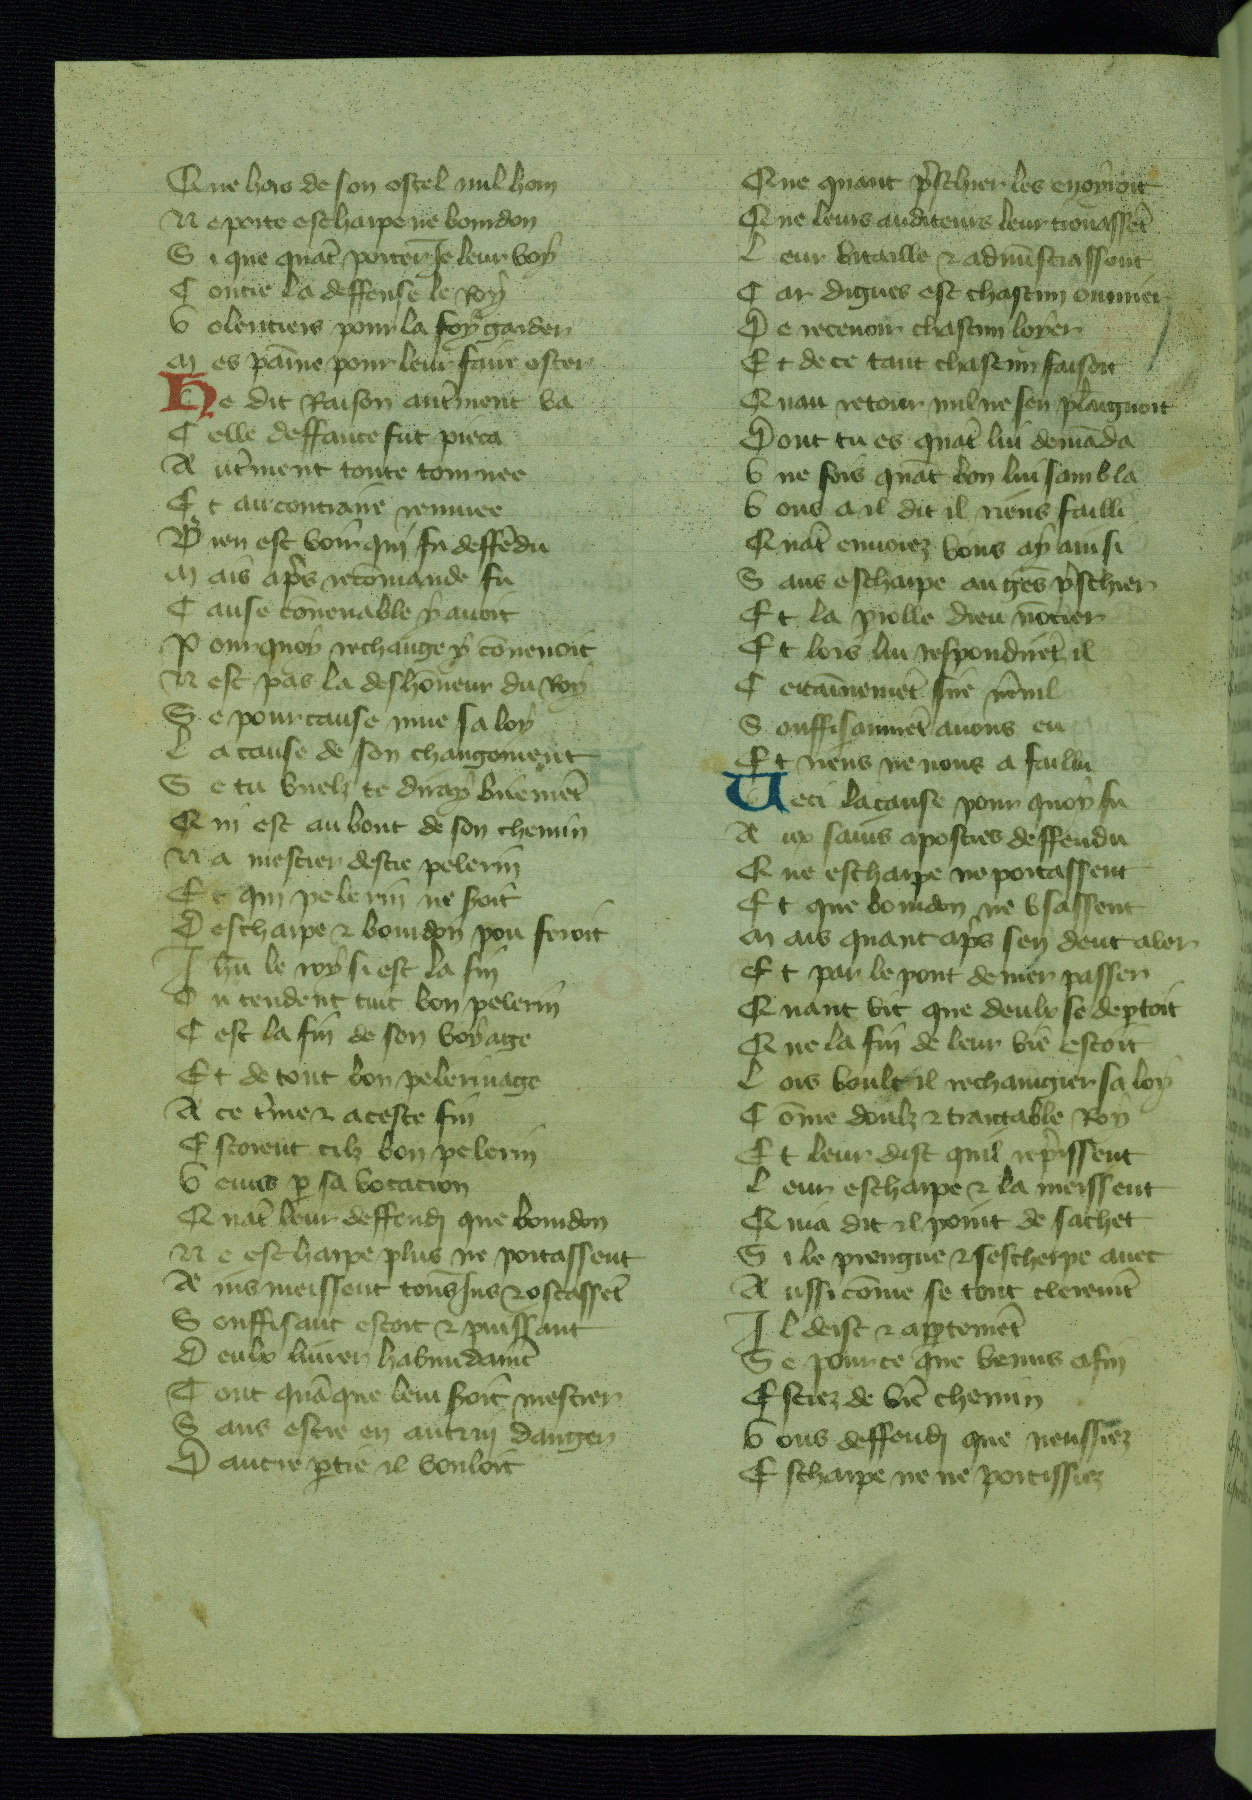 Que hors de son ostel nul hom
Ne porte escharpe ne bourdon
Si que quāt porter Ie leur voy
Contre la deffense le Roy
Volentiers pour la foy garder
Mes pāine pour leur faire oster
He dit Raison aut'ment va
Celle deffance fut pieca
Aut'ment toute tournee
Et au contraire remuee
Bien est voir qui fu deffēdu
Mais ap's recōmande fu
Cause cōuenable y auoit
Pourquoy rechange y cōuenoit
Nest pas la deshōneur du Roy
Se pour cause mue sa loy
La cause de son changement
Se tu vuelz te diray briemēt
Qui est au bout de son chemin
Na mestier destre pelerin
Et qui pelerin ne seroit
Descharpe ⁊ bourdon pou feroit
Ihū le roy si est la fin
Ou tendent tuit bon pelerin
Cest la fin de son voyage
Et de tout bon pelerinage
A ce t'me ⁊ a ceste fin
Estoient cilz bon pelerin
Venus p sa vocacion
Quāt leur deffendi que bourdon
Ne escharpe plus ne portassent
Ains meissent tous Ius ⁊ ostassēt
Souffisant estoit ⁊ puissant
Deulx liurer habundāmt
Tout quāque leur seroit mestier
Sans estre en autrui danger
Dautre ptie il vouloit
Que quant p'schier les enuoyoit
Que leurs auditeurs leur trouassēt
Leur vitaille ⁊ admīistrassent
Car dignes est chascun ouurier
De receuoir chascun loyer
Et de ce tant chascun faisoit
Quau retour nul ne sen plaignoit
Dont tu es quāt lui demāda
Vne fois quāt bon lui sambla
Vous a il dit il riens failli
Quāt enuoiez vous ay ainsi
Sans escharpe au gēs p'schier
Et la p'olle dieu nōcier
Et lors lui respondirēt il
Certainnemēt sire nēnil
Souffisanmēt auons eu
Et riens ne nous a faillu
Veci la cause pour quoy fu
Aux sains apostres deffendu
Que escharpe ne portassent
Et que bourdon ne vsassent
Mais quant ap's sen deut aler
Et par le pont de mer passer
Quant vit que deulx se deptoit
Que la fin de leur vie estoit
Lors voult il rechangier sa loy
Cōme doulz ⁊ traictable Roy
Et leur dist quil rep'issent
Leur escharpe ⁊ la meissent
Qui a dit il point de sachet
Si le prengne ⁊ sescherpe auec
Aussi cōme se tout cleremt
Il deist ⁊ aptemēt
Se pour ce que venus a fin
Estiez de vrē chemin
Vous deffendi que neussiez
Escharpe ne ne portissiez